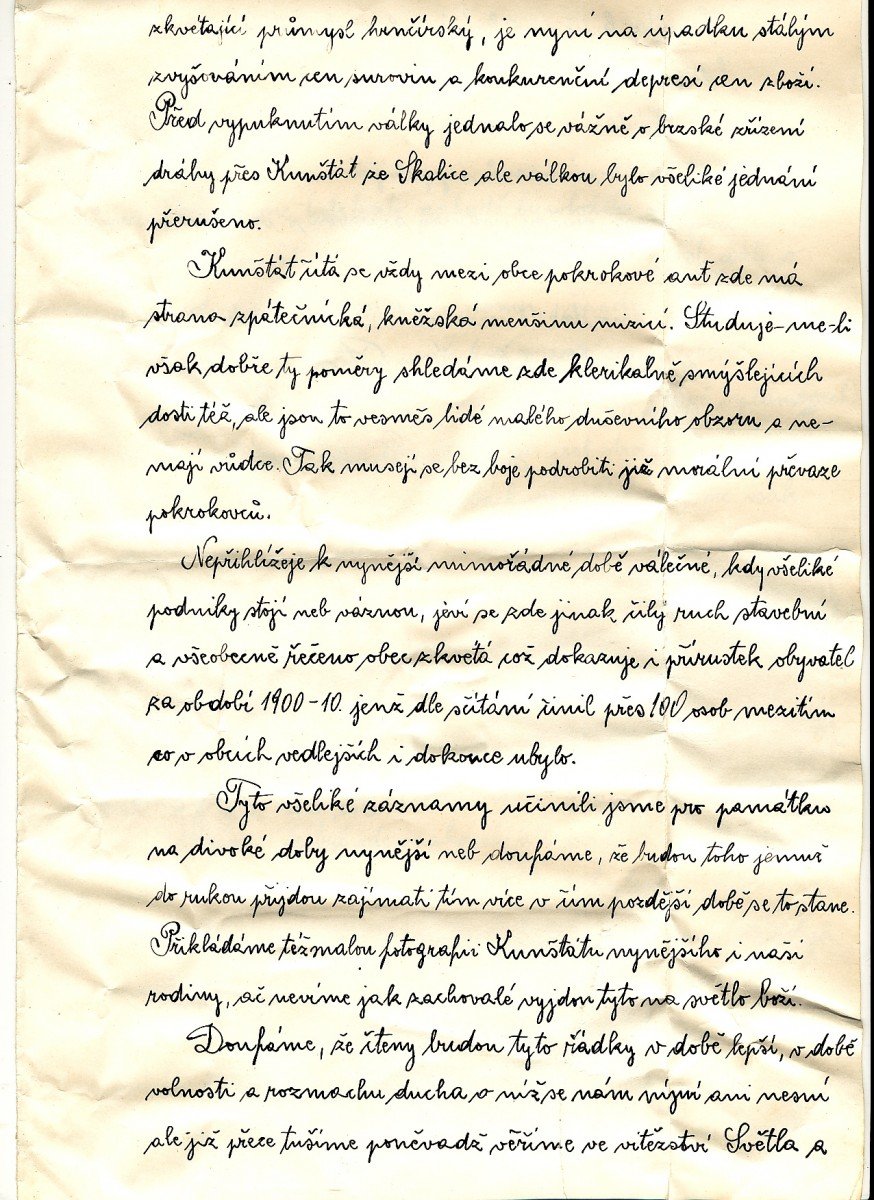 zkvétající průmysl hrnčířský, je nyní na úpadku stálým
zvyšováním cen surovin a konkurenční depresí cen zboží.
Před vypuknutím války jednalo se vážně o brzské zřízení
dráhy přes Kunštát ze Skalice ale válkou bylo všeliké jednání
přerušeno.
Kunštát čítá se vždy mezi obce pokrokové ant zde má
strana zpátečnická, kněžská menšinu mizící. Studuje-me-li
však dobře ty poměry shledáme zde klerikálně smýšlejících
dosti též, ale jsou to vesměs lidé malého duševního obzoru a ne-
mají vůdce. Tak musejí se bez boje podrobiti již morální převaze
pokrokovců.
Nepřihlížeje k nynější mimořádné době válečné, kdy všeliké
podniky stojí neb váznou, jeví se zde jinak čilý ruch stavební
a všeobecně řečeno obec zkvétá což dokazuje i přírustek obyvatel
za období 1900-10. jenž dle sčítání činil přes 100 osob mezitím
co v obcích vedlejších i dokonce ubylo.
Tyto všeliké záznamy učinili jsme pro památku
na divoké doby nynější neb doufáme, že budou toho jemuž
do rukou přijdou zajímati tím více v čím pozdější době se to stane.
Přikládáme též malou fotografii Kunštátu nynějšího i naší
rodiny, ač nevíme jak zachovalé vyjdou tyto na světlo boží.
Doufáme, že čteny budou tyto řádky v době lepší, v době
volnosti a rozmachu ducha o níž se nám nyní ani nesní
ale již přece tušíme poněvadž věříme ve vitězství Světla a